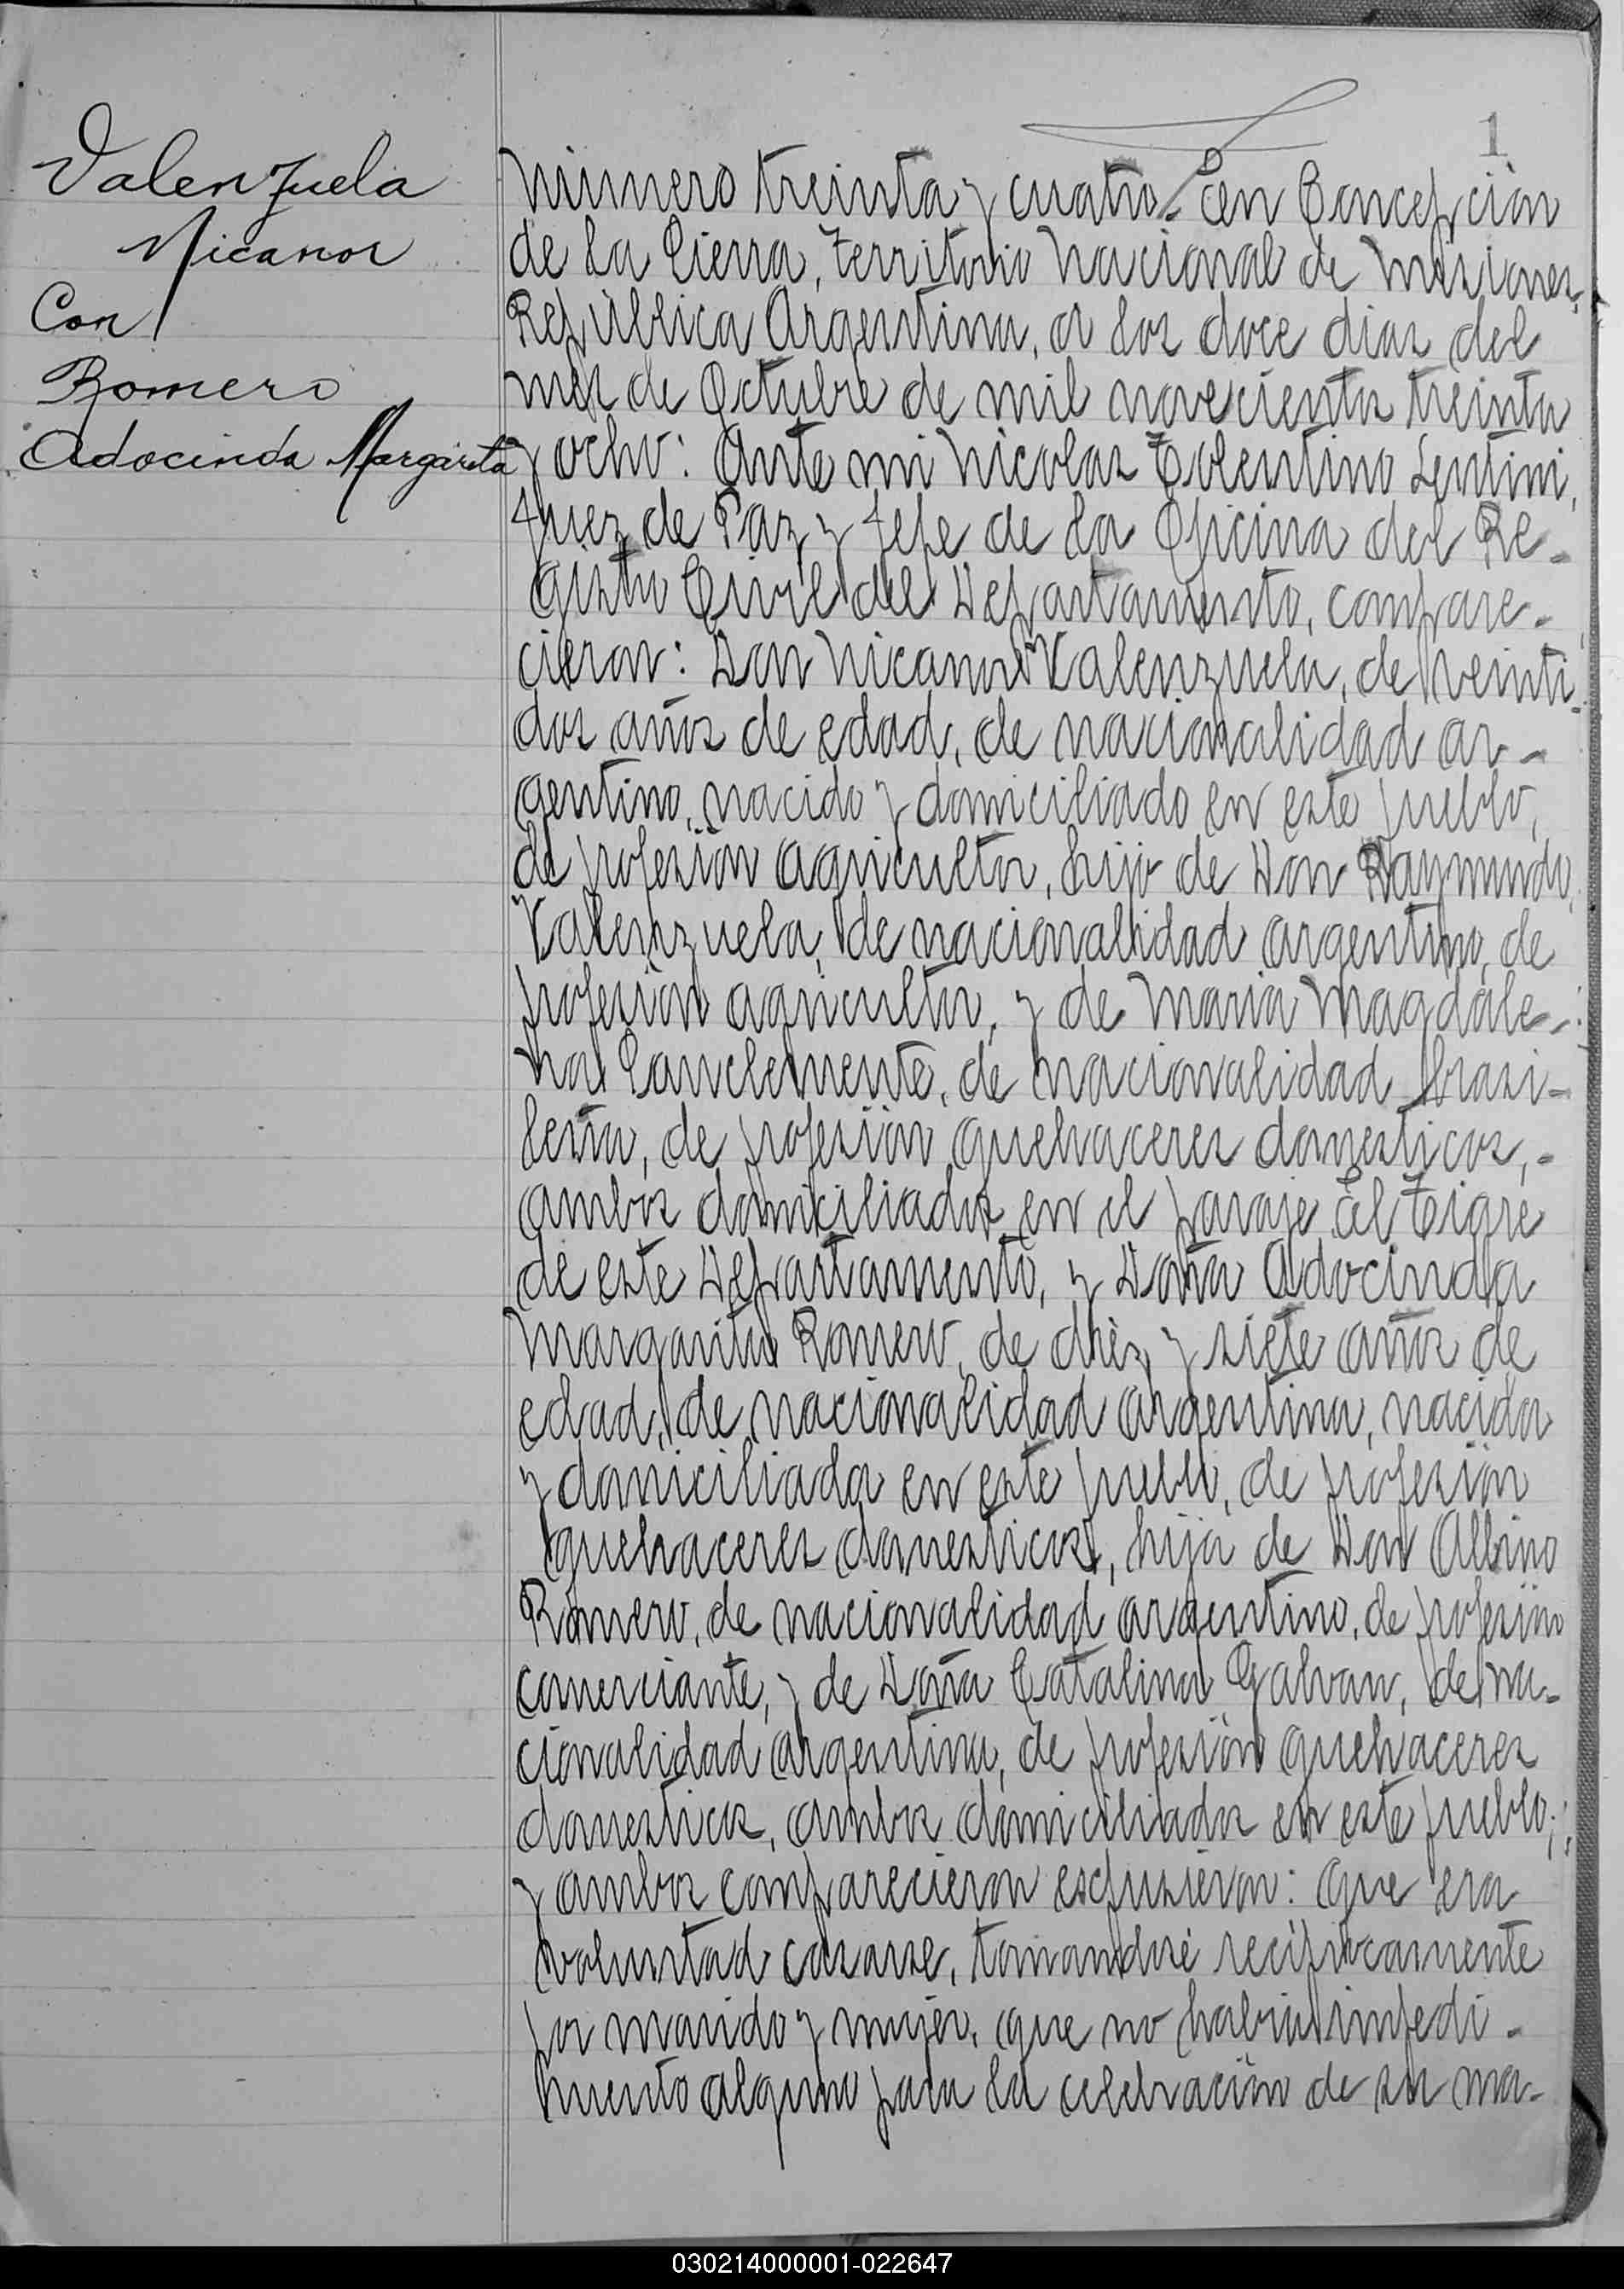 1
Valenzuela
Nicanor
Con
Romero
Adocinda Margarita
Número treinta y cuatro. En Concepción
de la Sierra, territorio Nacional de Misiones,
República Argentina, a los doce dias del
mes de Octubre de mil novecientos treinta
y ocho: Ante mi Nicolas Tolentino Lentini,
Juez de Paz y Jefe de la Oficina del Re-
gistro Civil del Departamento, compare-
cieron: Don Nicanor Valenzuela, de veinti-
dos años de edad, de nacionalidad ar-
gentino, nacido y domiciliado en este pueblo,
de profesión agricultor, hijo de Don Raymundo
Valenzuela, de nacionalidad argentino, de
profesión agricultor, y de Maria Magdale-
na Sanclemente, de nacionalidad brasi-
leña, de profesión quehaceres domesticos,-
ambos domiciliados en el paraje El Tigre
de este Departamento, y Doña Adocinda
Margarita Romero, de diez y siete años de
edad, de nacionalidad argentina, nacida
y domiciliada en este pueblo, de profesión
quehaceres domesticos, hija de Don Albino
Romero, de nacionalidad argentino, de profesión
comerciante, y de Doña Catalina Galvan, de na-
cionalidad argentina, de profesión quehaceres
domesticos, ambos domiciliados en este pueblo;
y ambos comparecieron expusieron: Que era
voluntad casarse, tomandose reciprocamente
por marido y mujer, que no habia impedi-
mento alguno para la celebración de su ma-
030214000001-022647